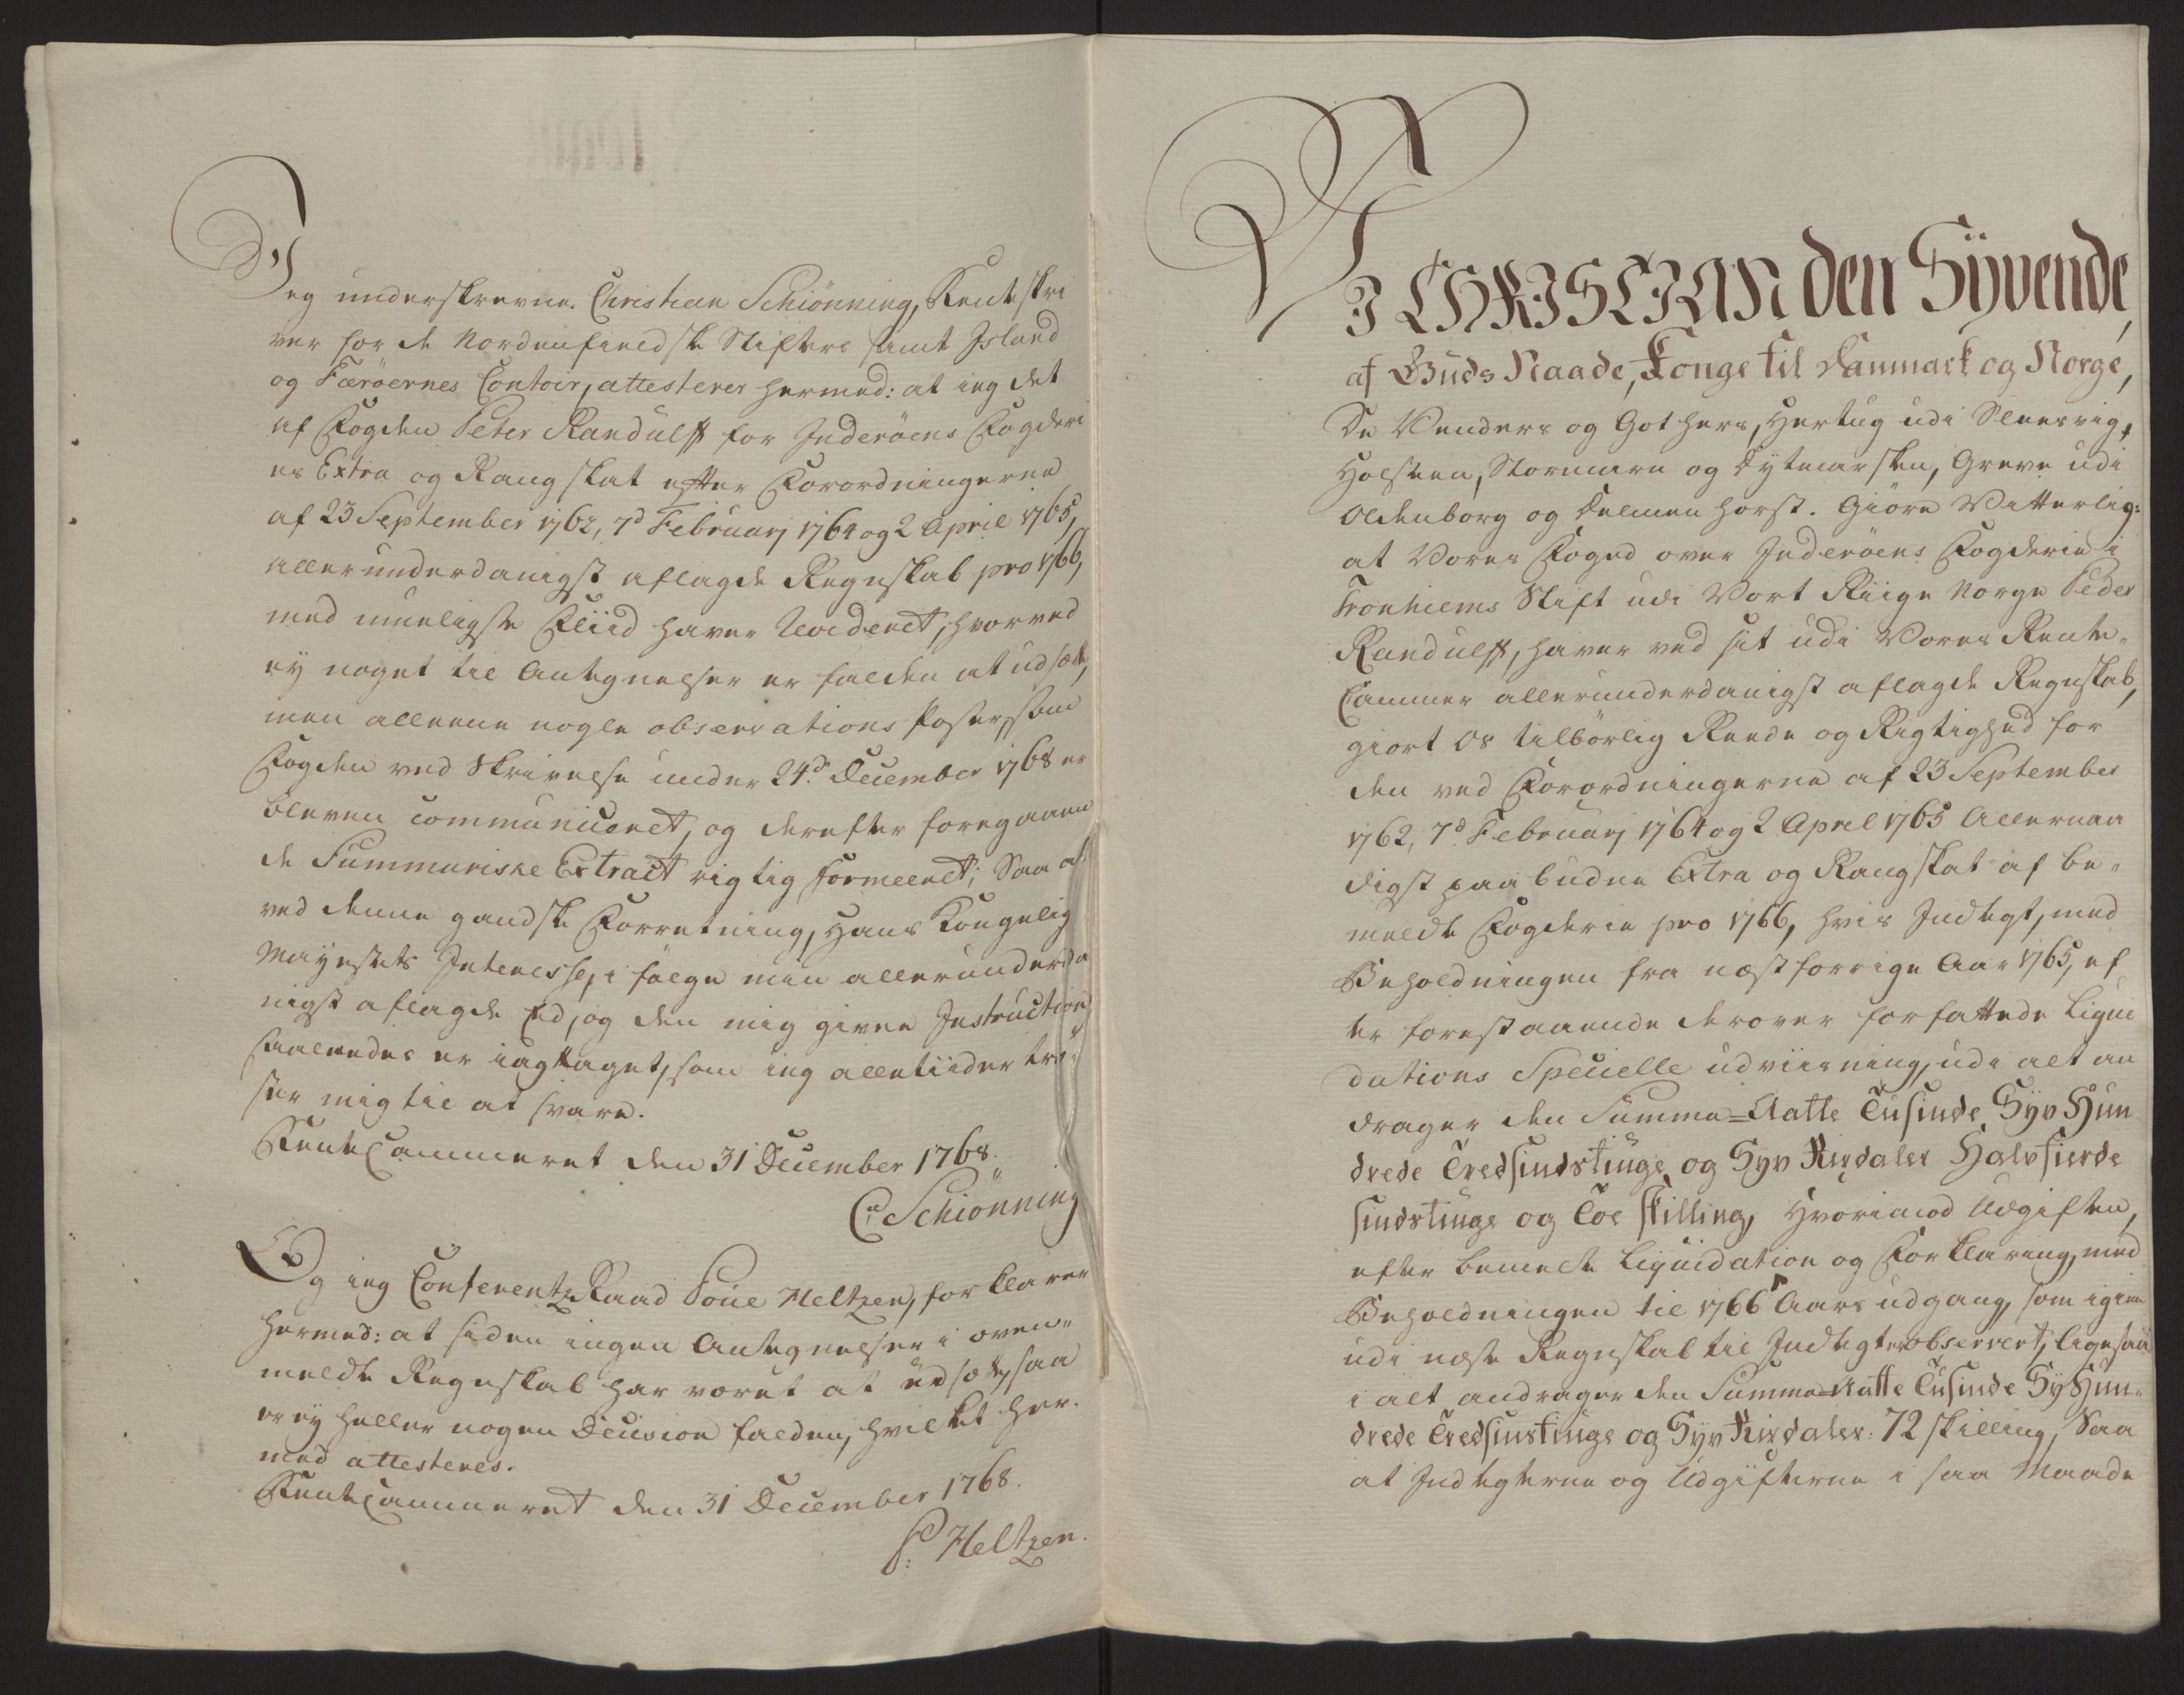 Jeg underskrevne Christian Schiönning, Renteskri
ver for de Nordenfieldske Stifters samt Island
og Færöernes Contoir, attesterer hermed: at ieg det
af Fogden Peter Randulff for Inderöens Fogderi
es Extra og Rang skat efter Forordningerne
af 23 September 1762, 7d Februarj 1764 og 2 April 1765,
allerunderdanigst aflagde Regnskab pro 1766,
med mueligste Fliid haver Revideret, hvorved
ey noget til Antegnelser er falden at udsætte,
men alleene nogle observations Poster, som
Fogden ved Skrivelse under 24d December 1768 er
bleven communiceret, og derefter foregaaen
de Summariske Extract rigtig formeeret; Saa at
ved denne gandske Forretning, Hans Kongelig
Mayestets Interesse, i fölge min allerunderda
nigst aflagde Eed, og den mig givne Instruction
saaledes er iagttaget, som ieg alletiider trö-
ster mig til at svare.
RenteCammeret den 31 December 1768.
C: Schiönning
Og ieg ConferentzRaad Poue Heltzen, forklarer
hermed: at siden ingen Antegnelser i oven-
meldte Regnskab har været at udsætte, saa
er ey heller nogen Decision falden, hvilket her-
med attesteres.
RenteCammeret den 31 December 1768.
P: Heltzen.
VI CHRISTIAN den Syvende,
af Guds Naade, Konge til Danmark og Norge,
De Venders og Gothers, Hertug udi Slesvig,
Holsteen, Stormarn og Dytmarsken, Greve udi
Oldenborg og Delmenhorst. Giöre Vitterlig:
at Vores Foged over Inderöens Fogderie i
Tronhiems Stift udi Vort Riige Norge Peder
Randulff, haver ved sit udi Vores Rente-
Cammer allerunderdanigst aflagde Regnskab,
giort Os tilbörlig Reede og Rigtighed for
den ved Forordningerne af 23 September
1762, 7d Februarj 1764 og 2 April 1765 Allernaa
digst paabudne Extra og Rangskat af be-
meldte Fogderie pro 1766, hvis Indtegt, med
Beholdningen fra næstforrige Aar 1765, ef
ter forestaaende derover forfattede Liqui
dations Specielle udviisning, udi alt an
drager den Summa = Aatte Tusinde, Syv Hun
drede Tredsindstiuge og Syv Rixdaler Halvfierde
sindstiuge og Toe skilling, Hvorimod Udgiften,
efter bemeldte Liquidation og Forklaring, med
Beholdningen til 1766 Aars udgang, som igien
udi næste Regnskab til Indtegt er observeret, ligesaa
i alt andrager den Summa = Aatte Tusinde Sy Hun-
drede Tredsinstiuge og Syv Rixdaler: 72 skilling, Saa
at Indtegterne og Udgifterne i saa Maade